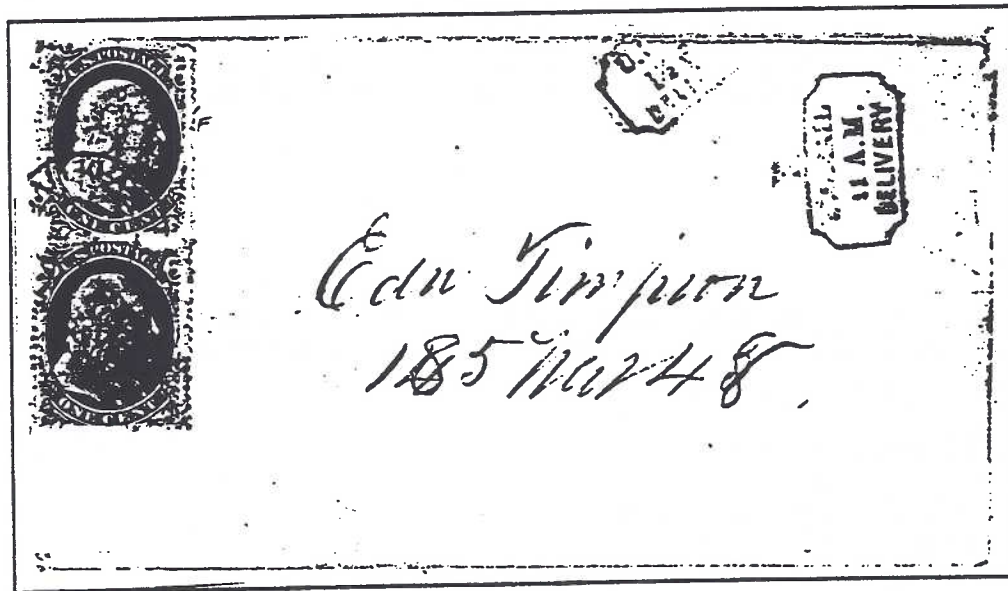 U.S. POSTAGE
ONE CENT
POSTAGE
ONE CENT
12
DEL.
U.S. MAIL
11 A.M.
DELIVERY
Edw Timpson
185 West 48